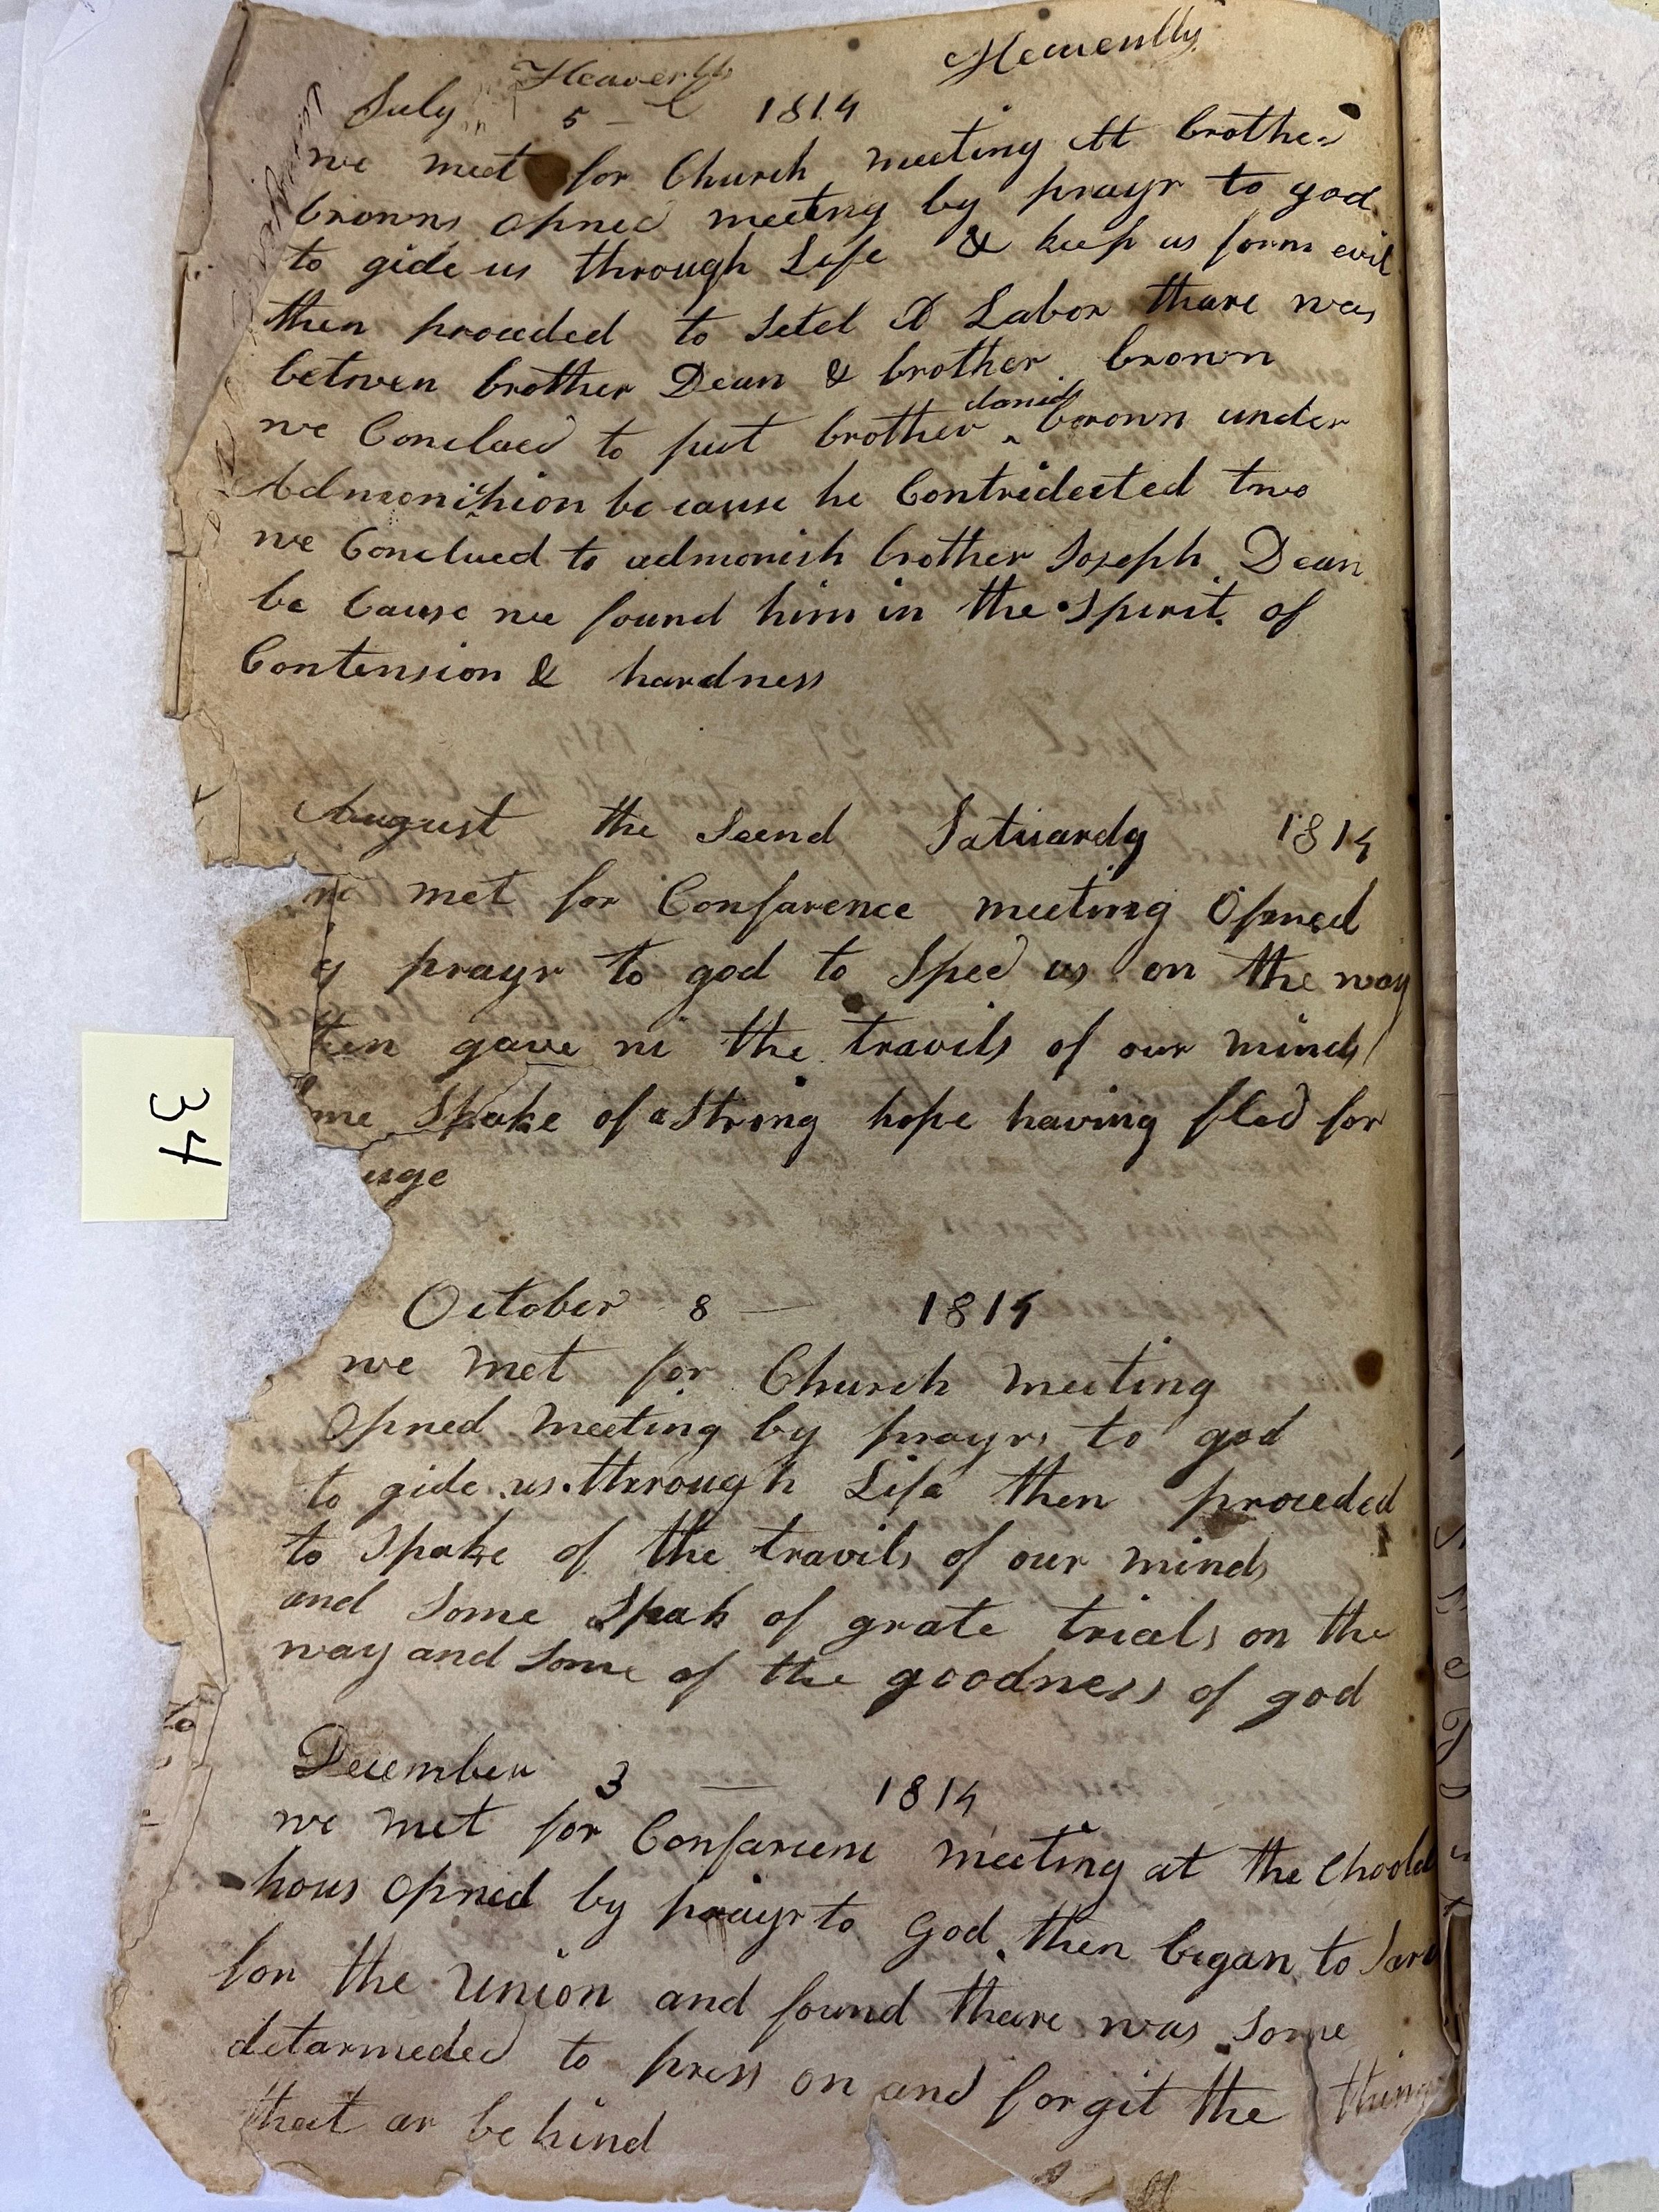 Heavenly
Heavenly
July 5 - 1814
we meet for Church meeting att brother
browns opned meeting by prayr to god
to gide us through Life & keep us form evil
then proceded to Setel A Labor thare was
betwen brother Dean & brother brown
daniel
we Conclued to put brother ^ brown under
Admonichion be cause he Contredicted two
we Conclued to admonish brother Joseph Dean
be Cause we found him in the Spirit of
Contension & hardness
August the Scend Satuardy 1814
we met for Confarence meeting Opned
y prayr to god to Sped us on the way
then gave in the travils of our minds
me Spake of a Strong hope having fled for
uge
October 8 — 1814
we met for Church meeting
Opned meeting by prayr to god
to gide us through Life then proceded
to Spake of the travils of our minds
and Some Speak of grate trials on the
way and Some of the goodness of god
December 3 — 1814
we met for Confarenc meeting at the Choolel
hous Opned by prayr to God then began to Sarc
for the Union and found theare was Some
detarmeded to press on and forgit the things
that ar be hind
34